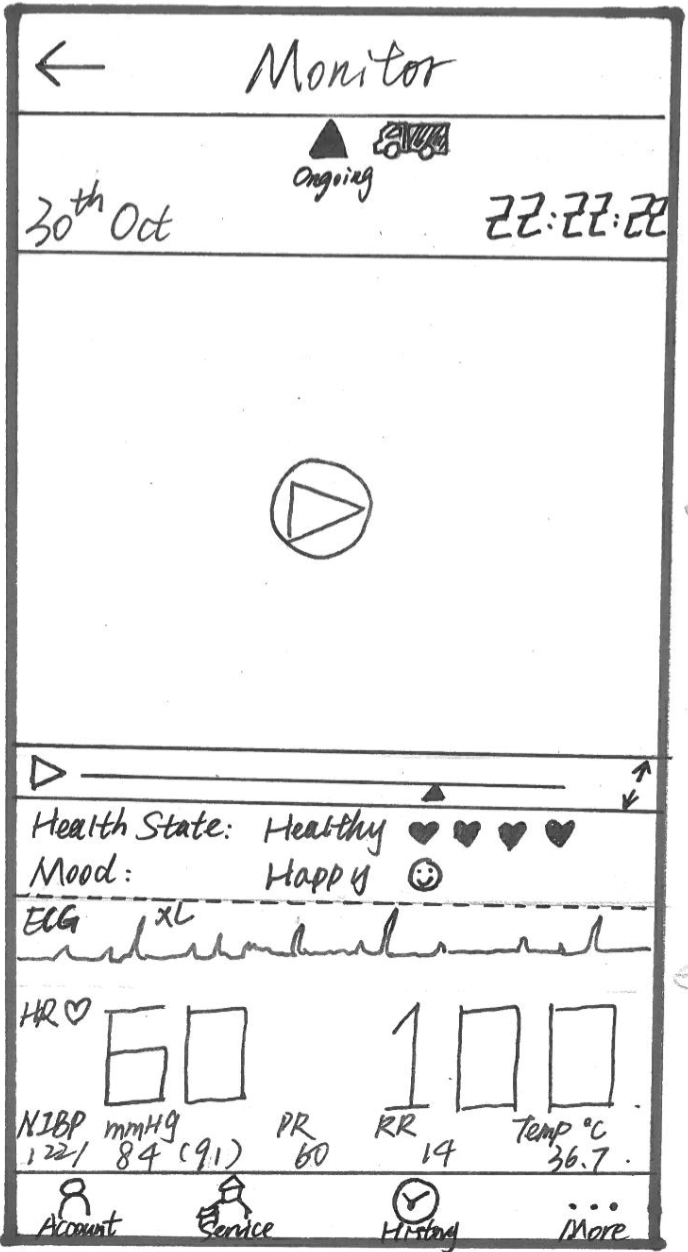 Monitor
Ongoing
30th Oct 22:22:22
Health State: Healthy
Mood: Happy
ECG XL
HR 60 100
NIBP mmHg PR RR Temp °C
122/ 84 (91) 60 14 36.7
Account Service History More